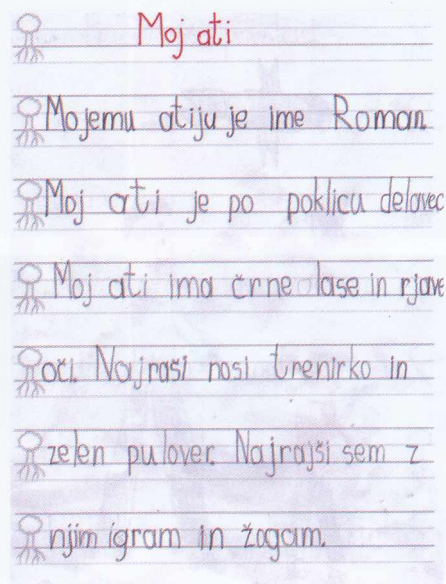 Moj ati
Mojemu atiju je ime Roman.
Moj ati je po poklicu delavec
Moj ati ima črne lase in rjave
oči. Najraši nosi trenirko in
zelen pulover. Najrajši sem z
njim igram in žogam.